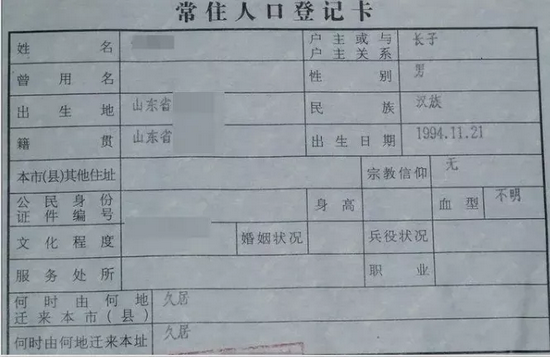 常住人口登记卡
姓名
户主或与户主关系 长子
曾用名 性别 男
出生地 山东省 民族 汉族
籍贯 山东省 出生日期 1994.11.21
本市(县)其他住址 宗教信仰 无
公民身份证件编号 身高 血型 不明
文化程度 婚姻状况 兵役状况
服务处所 职业
何时由何地迁来本市(县) 久居
何时由何地迁来本址 久居